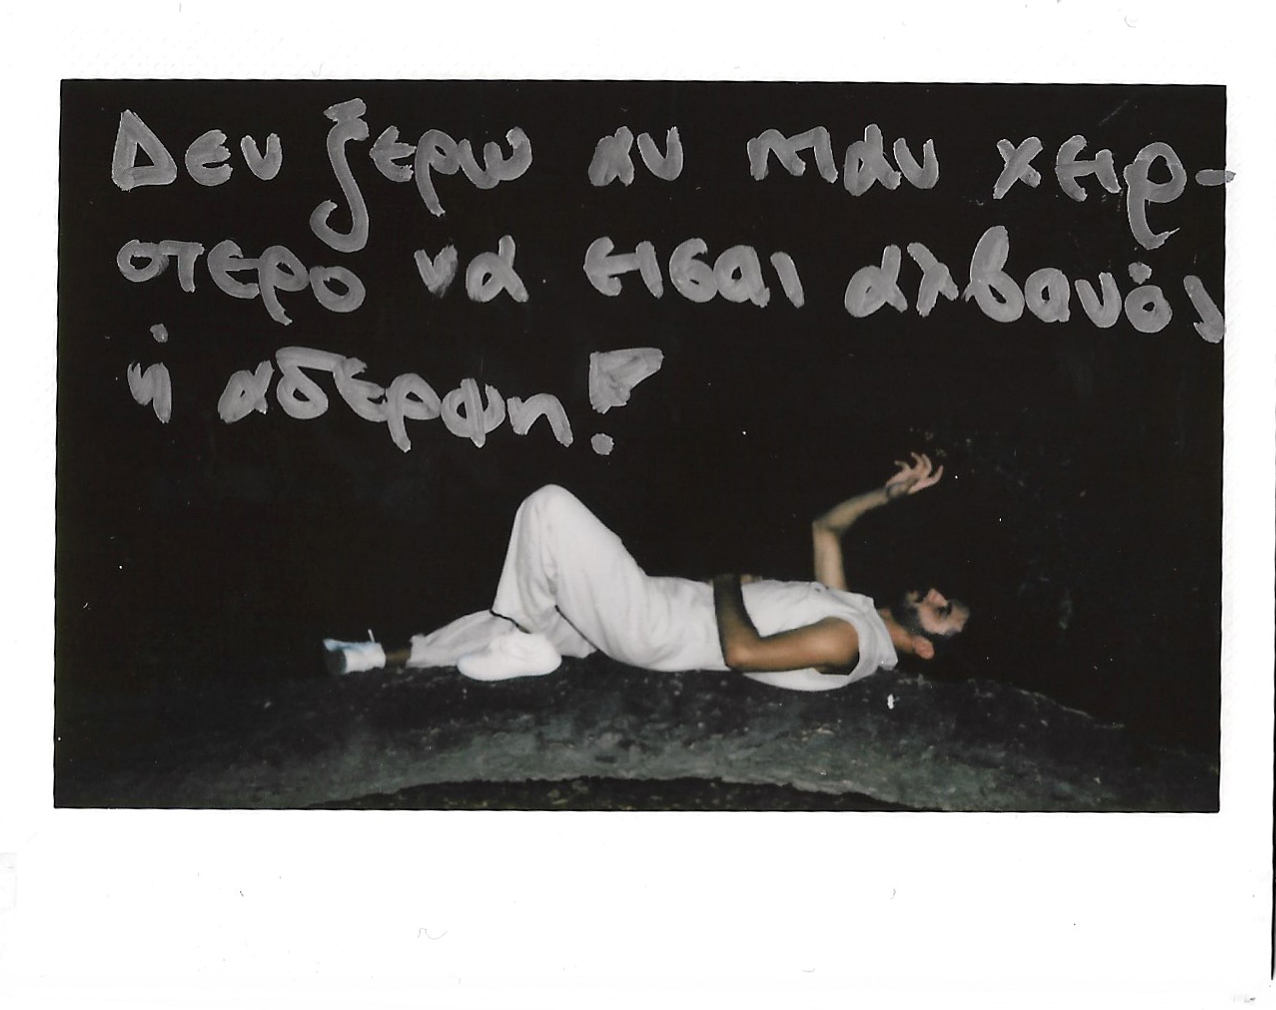 Δεν ξερω αν ταν χειρ-
οτερο να εισαι αλβανός
ή αδερφη!